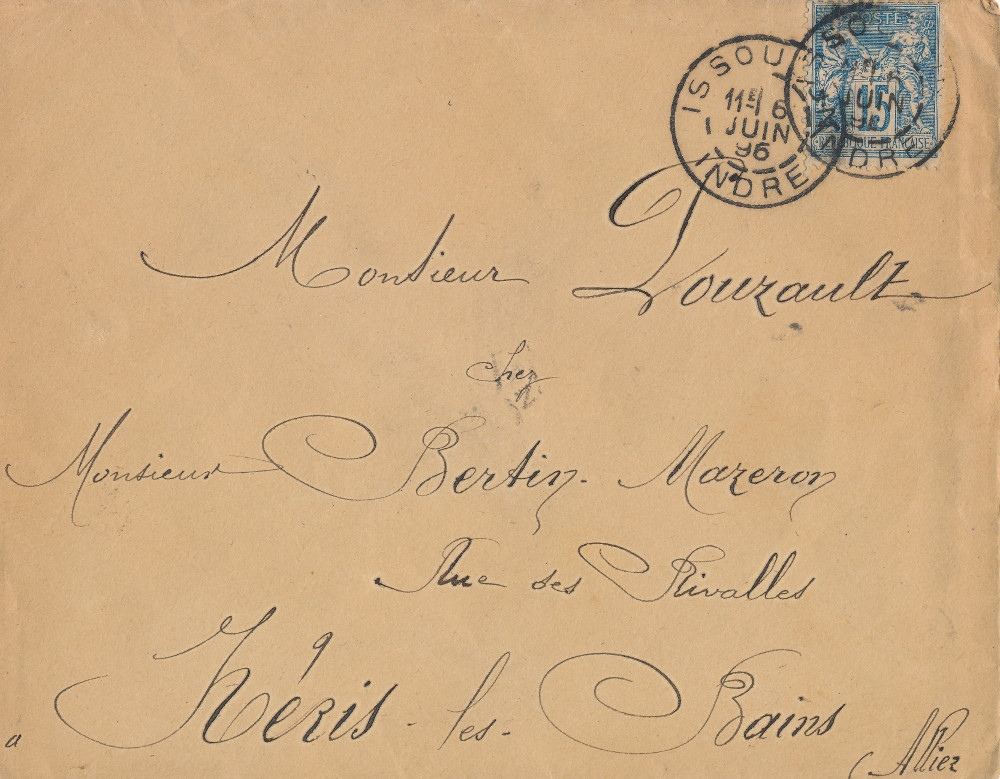 ISSOUDUN
11E 6
JUIN
96
INDRE
POSTE
15
REPUBLIQUE FRANCAISE
Monsieur Louzault
chez
Monsieur Bertin-Mazeron
Rue des Rivalles
à Néris-les-Bains
(Allier